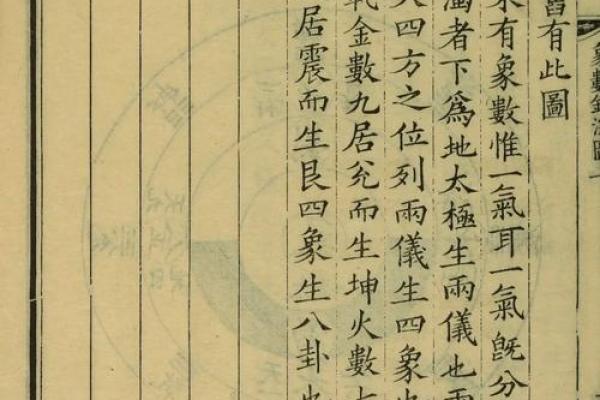 象數鉤深圖
舊有此圖
未有象數惟一氣耳一氣旣分
濁者下爲地太極生兩儀也兩
火四方之位列兩儀生四象也
乾金數九居兊而生坤火數七
居震而生艮四象生八卦也